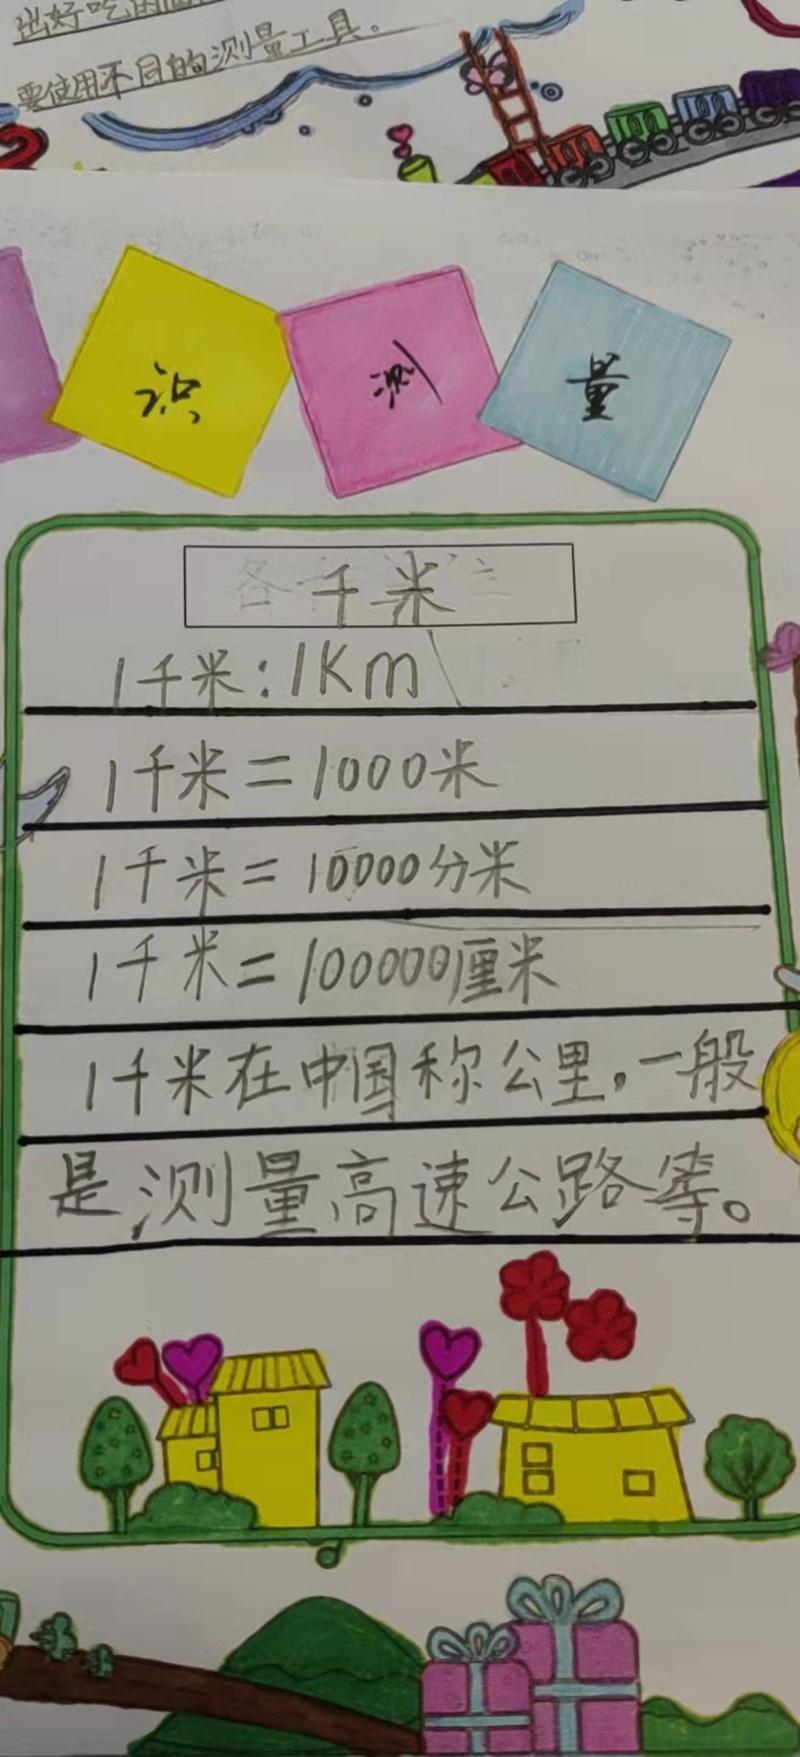 出好吃的
要使用不同的测量工具。
识测量
千米
1千米:1Km
1千米=1000米
1千米=10000分米
1千米=100000厘米
1千米在中国称公里,一般
是测量高速公路等。